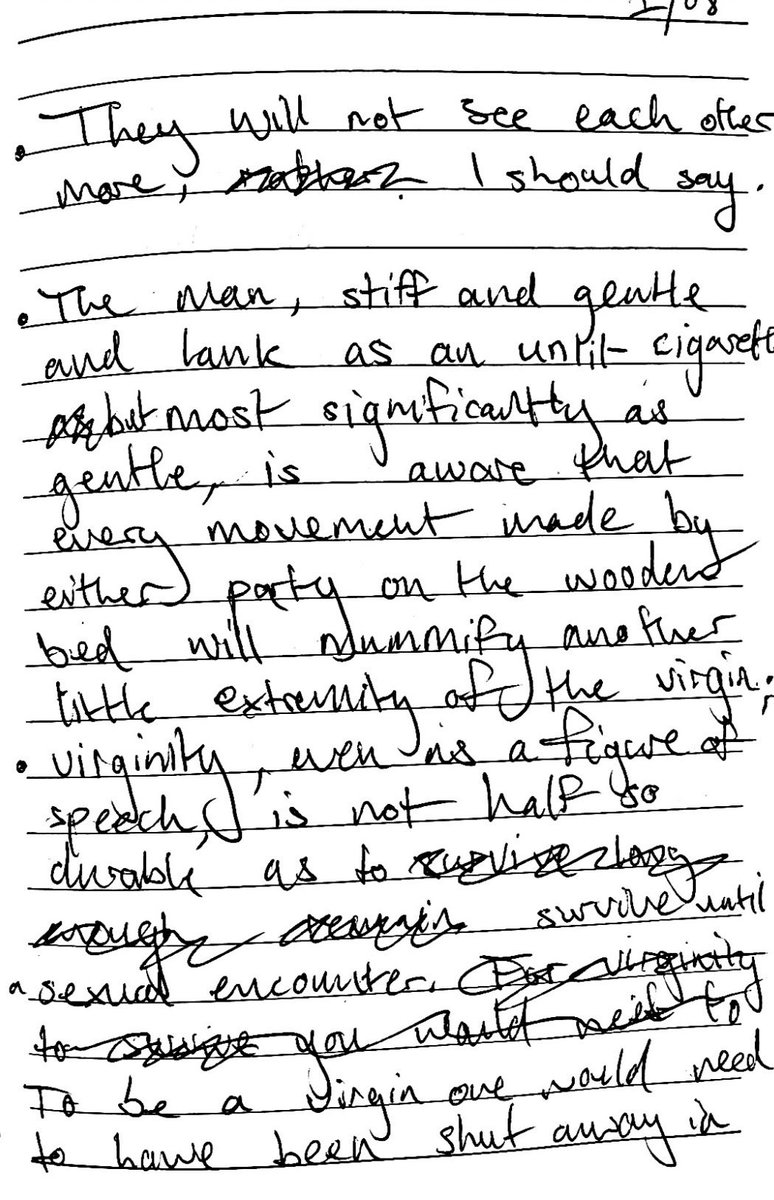 1/08
. They will not see each other
more, rather. I should say.
. The man, stiff and gentle
and lank as an unlit cigarett
as but most significantly as
gentle, is aware that
every movement made by
either party on the wooden
bed will mummify another
little extremity of the virgin;
. virginity, even as a figure of
speech, is not half so
durable as to survive long
enough remain survive until
a sexual encounter. For virginity
to survive you would need to
To be a virgin one would need
to have been shut away in